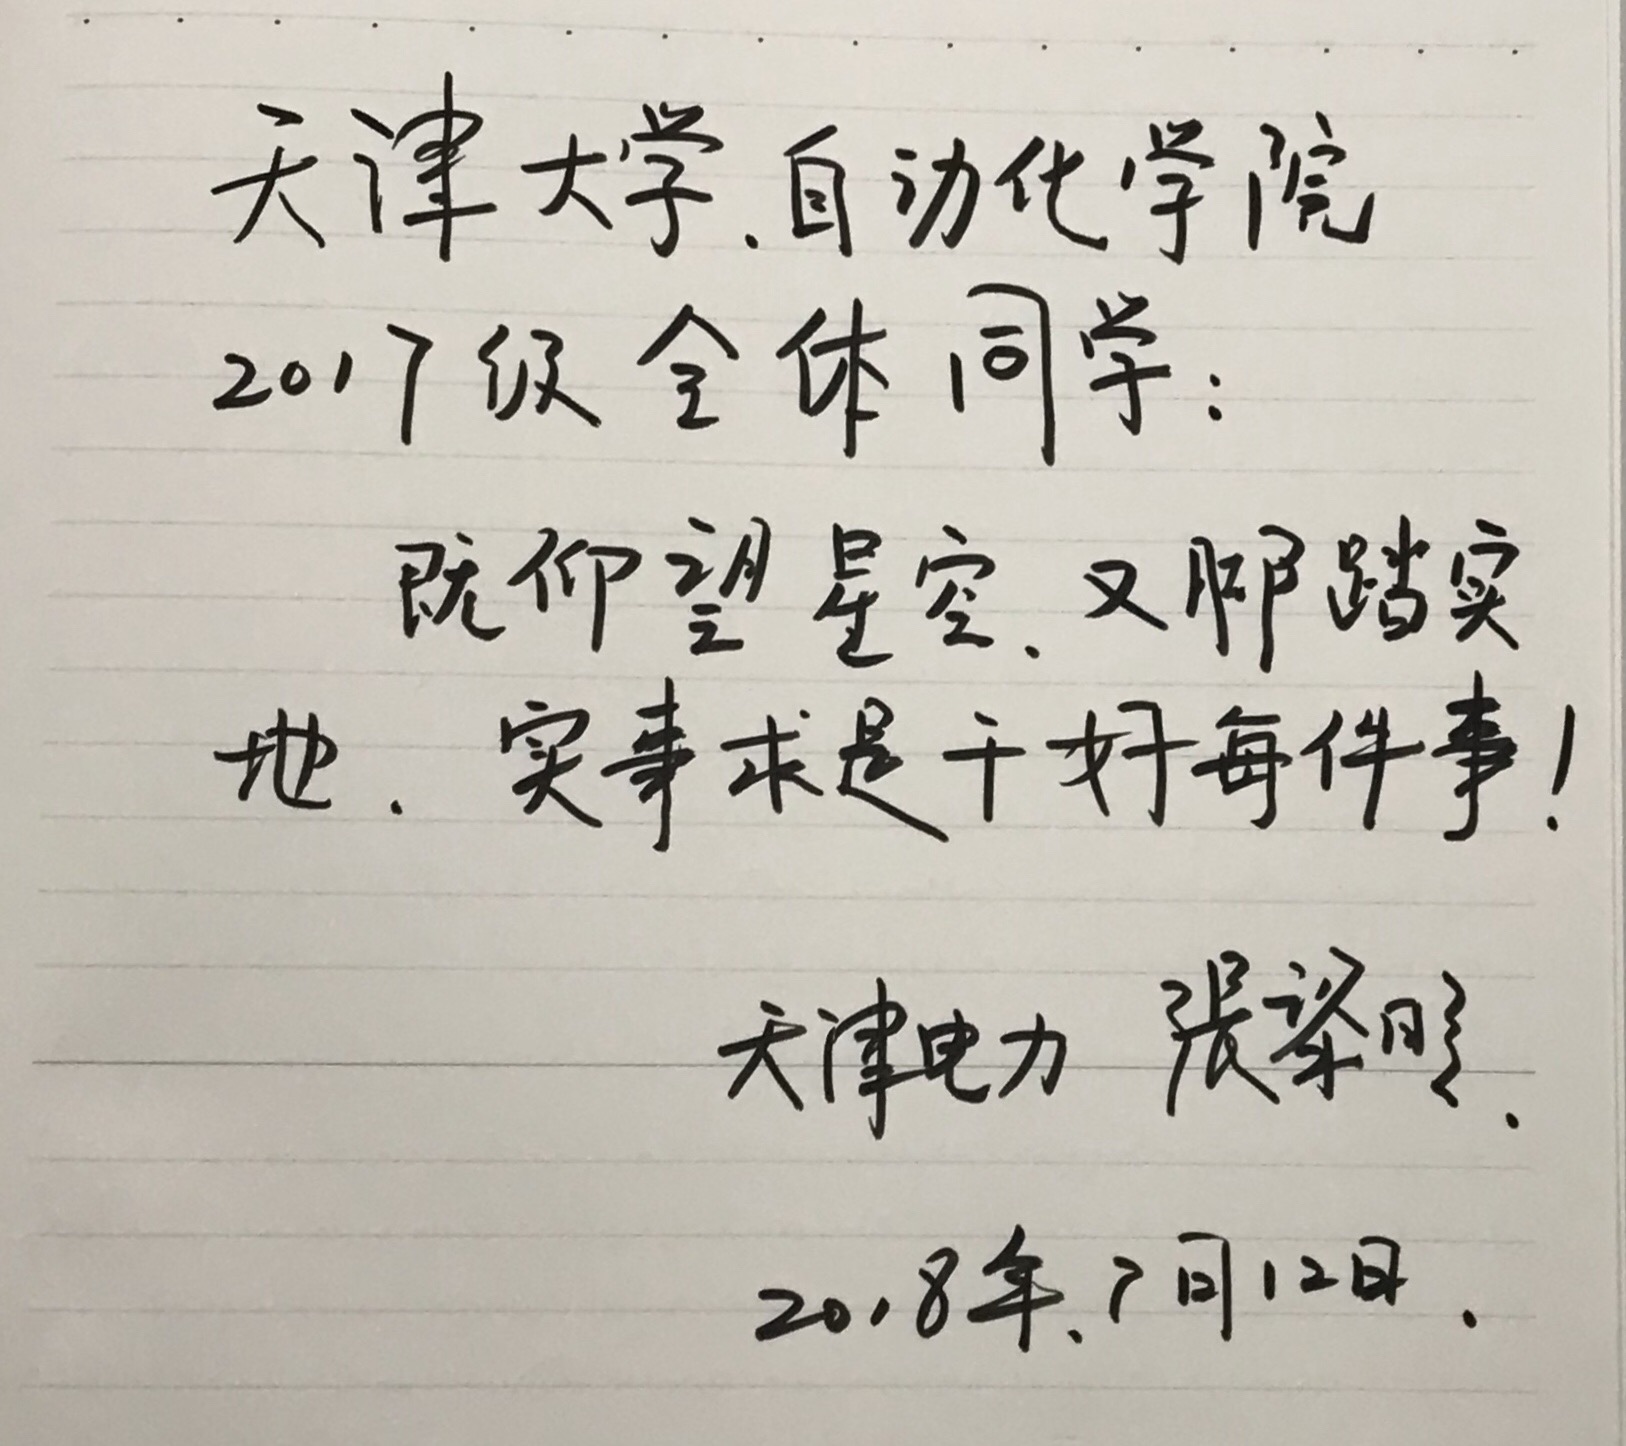 天津大学、自动化学院
2017级全体同学:
既仰望星空、又脚踏实
地. 实事求是干好每件事!
天津电力 張黎明.
2018年、7月12日.